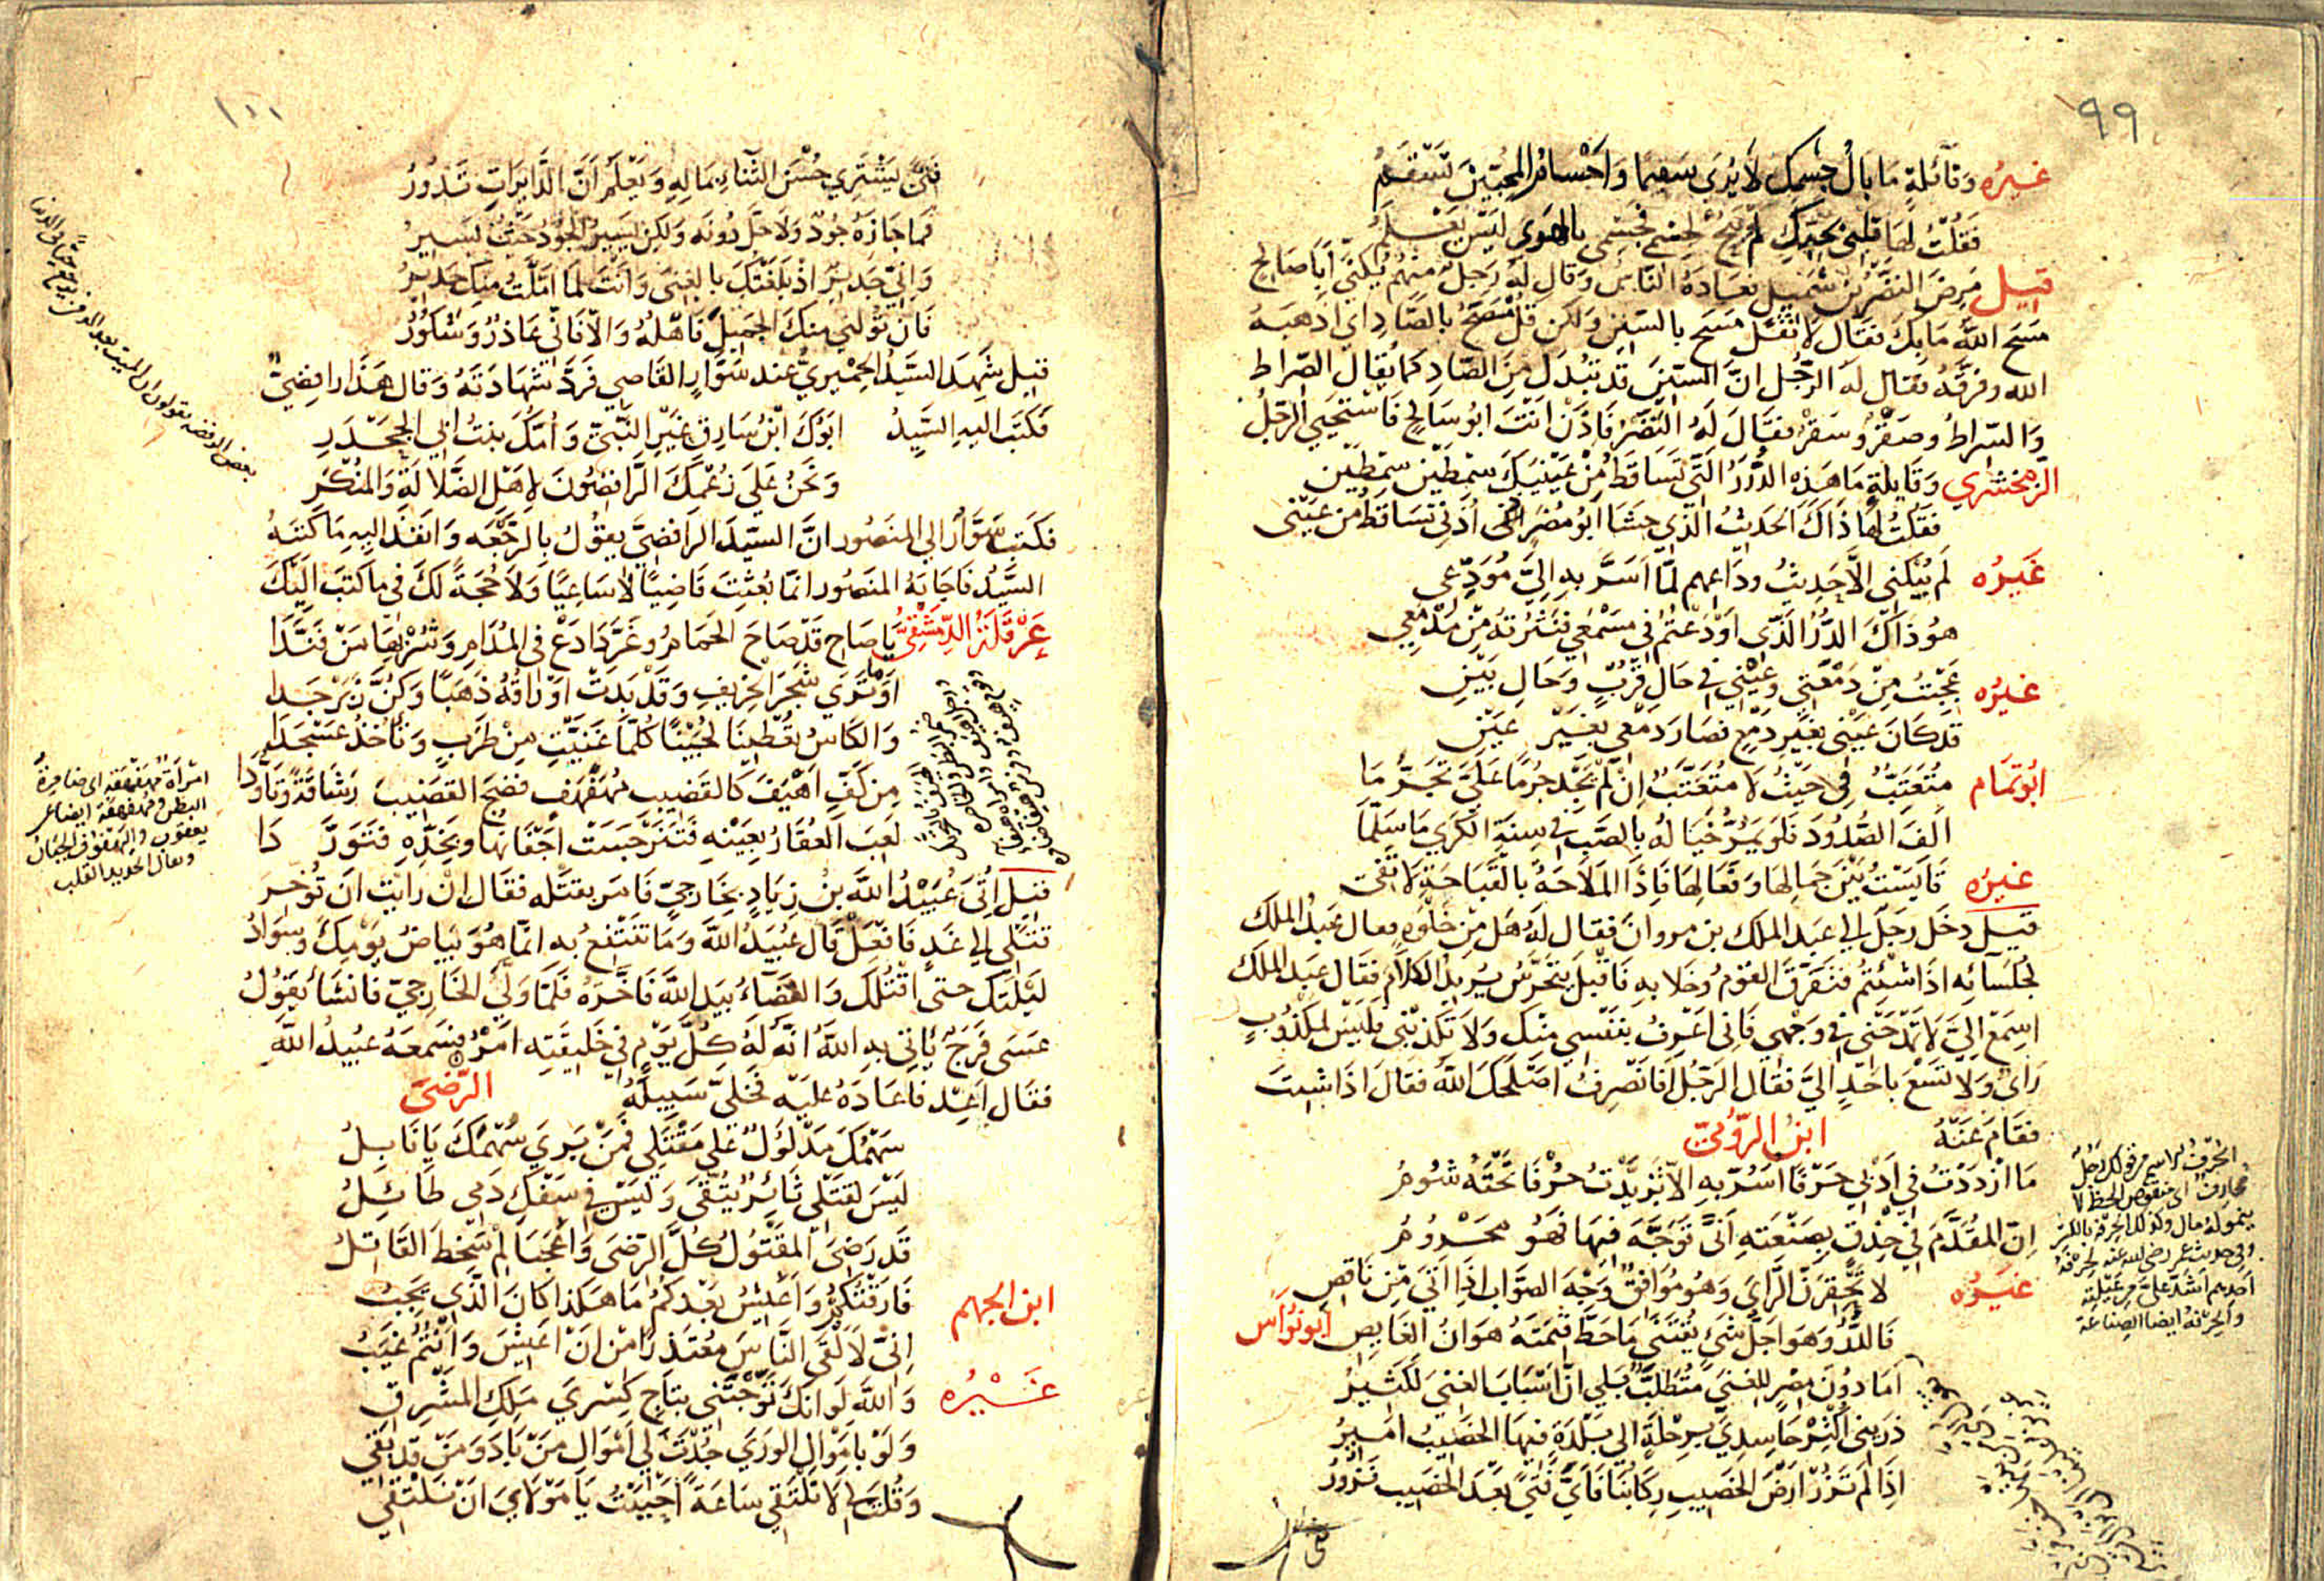 ٩٩
غيره وقائلة ما بال جسمك لا يرى سقيما واجسام المحبين تسقم
فقلت لها قلبي بحبك لم يبح لجسمي فجسمي بالهوى ليس يعلم
قيل مرض النضر بن شميل فعاده الناس وقال له رجل منهم يكنى ابا صالح
مسح الله ما بك فقال لا تقل مسح بالسين ولكن قل مصح بالصاد اي اذهبه
الله وفرقه فقال له الرجل ان السين قد تبدل من الصاد كما يقال الصراط
والسراط وصقر وسقر فقال له النضر فاذن انت ابو سالح فاستحيي الرجل
الزمخشري وقايلة ما هذه الدرر التي تساقط من عينيك سمطين سمطين
فقلت لها ذاك الحديث الذي حشا ابو مضر اذني تساقط من عيني
غيره لم يبكني الا حديث وداعهم لما اسر به الي مودعي
هو ذاك الدر الذي اودعتم في مسمعي فنثرته من مدمعي
غيره عجبت من دمعتي وعيني في حال قرب وحال بين
قد كان عيني بغير دمع فصار دمعي بغير عين
ابو تمام متعتب في حيث لا متعتب ان لم يجد جرما علي تجرما
الف الصدود فلو يمر خياله بالصب في سنة الكرى ما سلما
غيره قايست بين جمالها وفعالها فاذا الملاحة بالقباحة لا تفي
قيل دخل رجل الى عبد الملك بن مروان فقال له هل من خلوه فقال عبد الملك
لجلسائه اذا شئتم فتفرق القوم وخلا به فاقبل يتحرس يريد الكلام فقال عبد الملك
اسمع الي لا تمدحني في وجهي فاني اعرف بنفسي منك ولا تكذبني فليس لمكذوب
راي ولا تسع باحد الي فقال الرجل افانصرف اصلحك الله فقال اذا شيت
فقام عنه ابن الرومي
ما ازددت في ادبي حرفا اسر به الا تزيدت حرفا تحته شوم
ان المقدم في حذق بصنعته انى توجه فيها فهو محروم
غيره لا تحقرن الراي وهو موافق وجه الصواب اذا اتى من ناقص
فالدر وهو اجل شي يقتنى ما حط قيمته هوان الغايص ابو نواس
اما دون مصر للغنى متطلب بلى ان اسباب الغنى لكثير
ذريني اكثر حاسدي برحلة الى بلدة فيها الخصيب امير
اذا لم تزر ارض الخصيب ركابنا فاي فتى بعد الخصيب تزور
فتى
الحرف
محارف اي منقوص الحظ لا
ينمو له مال وكذلك الحرفه بالكسر
وفي حديث عمر رضي الله عنه لحرفة
احدهم اشد علي من عيلته
والحرفة ايضا الصناعة
١٠٠
فتى يشتري حسن الثناء بماله ويعلم ان الدايرات تدور
فما جازه جود ولا حل دونه ولكن يسير الجود حيث يسير
واني جدير اذ بلغتك بالغنى وانت لما املت منك جدير
فان تولني منك الجميل فاهله والا فاني عاذر وشكور
قيل شهد السيد الحميري عند سوار القاضي فرد شهادته وقال هذا رافضي
فكتب اليه السيد ابوك ابن سارق عنز النبي وامك بنت ابي الجحدر
ونحن على زعمك الرافضون لاهل الضلالة والمنكر
فكتب سوار الى المنصور ان السيد الرافضي يقول بالرجعه وانفذ اليه ما كتبه
السيد فاجابه المنصور انما بعثت قاضيا لا ساعيا ولا حجة لك في ما كتب اليك
عرقلة الدمشقي يا صاح قد صاح الحمام وغردا دع في المدام وشربها من فندا
او ما ترى شجر الخريف وقد بدت اوراقه ذهبا وكن زبرجدا
والكاس يعطينا لجينا كلما غنيت من طرب وناخذ عسجدا
من كف اهيف كالقضيب مهفهف فضح القضيب رشاقة وتاودا
لعب العقار بعينه فتنرجست اجفانها وبخده فتوردا
قيل اتى عبيد الله بن زياد بخارجي فامر بقتله فقال ان رايت ان تؤخر
قتلي الى غد فافعل قال عبيد الله وما تنتفع به انما هو بياض يومك وسواد
ليلتك حتى اقتلك والقضاء بيد الله فاخره فلما ولي الخارجي فانشا يقول
عسى فرج ياتي به الله انه له كل يوم في خليقته امر فسمعه عبيد الله
فقال اعد فاعاده عليه فخلي سبيله الرضى
سهمك مدلول على مقتلي فمن يرى سهمك يا نابل
ليس لقتلي ثائر يتقى وليس في سفك دمي طائل
قد رضي المقتول كل الرضى واعجبا لم سخط القاتل
ابن الجهم فارقتكم واعيش بعدكم ما هكذا كان الذي يجب
اني لالقى الناس معتذرا من ان اعيش وانتم غيب
غيره والله لو انك توجتني بتاج كسرى ملك المشرق
ولو باموال الورى جدت لي اموال من باد ومن قد بقي
وقلت لي لا نلتقي ساعة اجبت يا مولاي ان نلتقي
امرأة مهفهفة اي ضامرة
البطن ومهفهفة ايضا عن
يعقوب واليهفوف الجبان
ويقال الحديد القلب